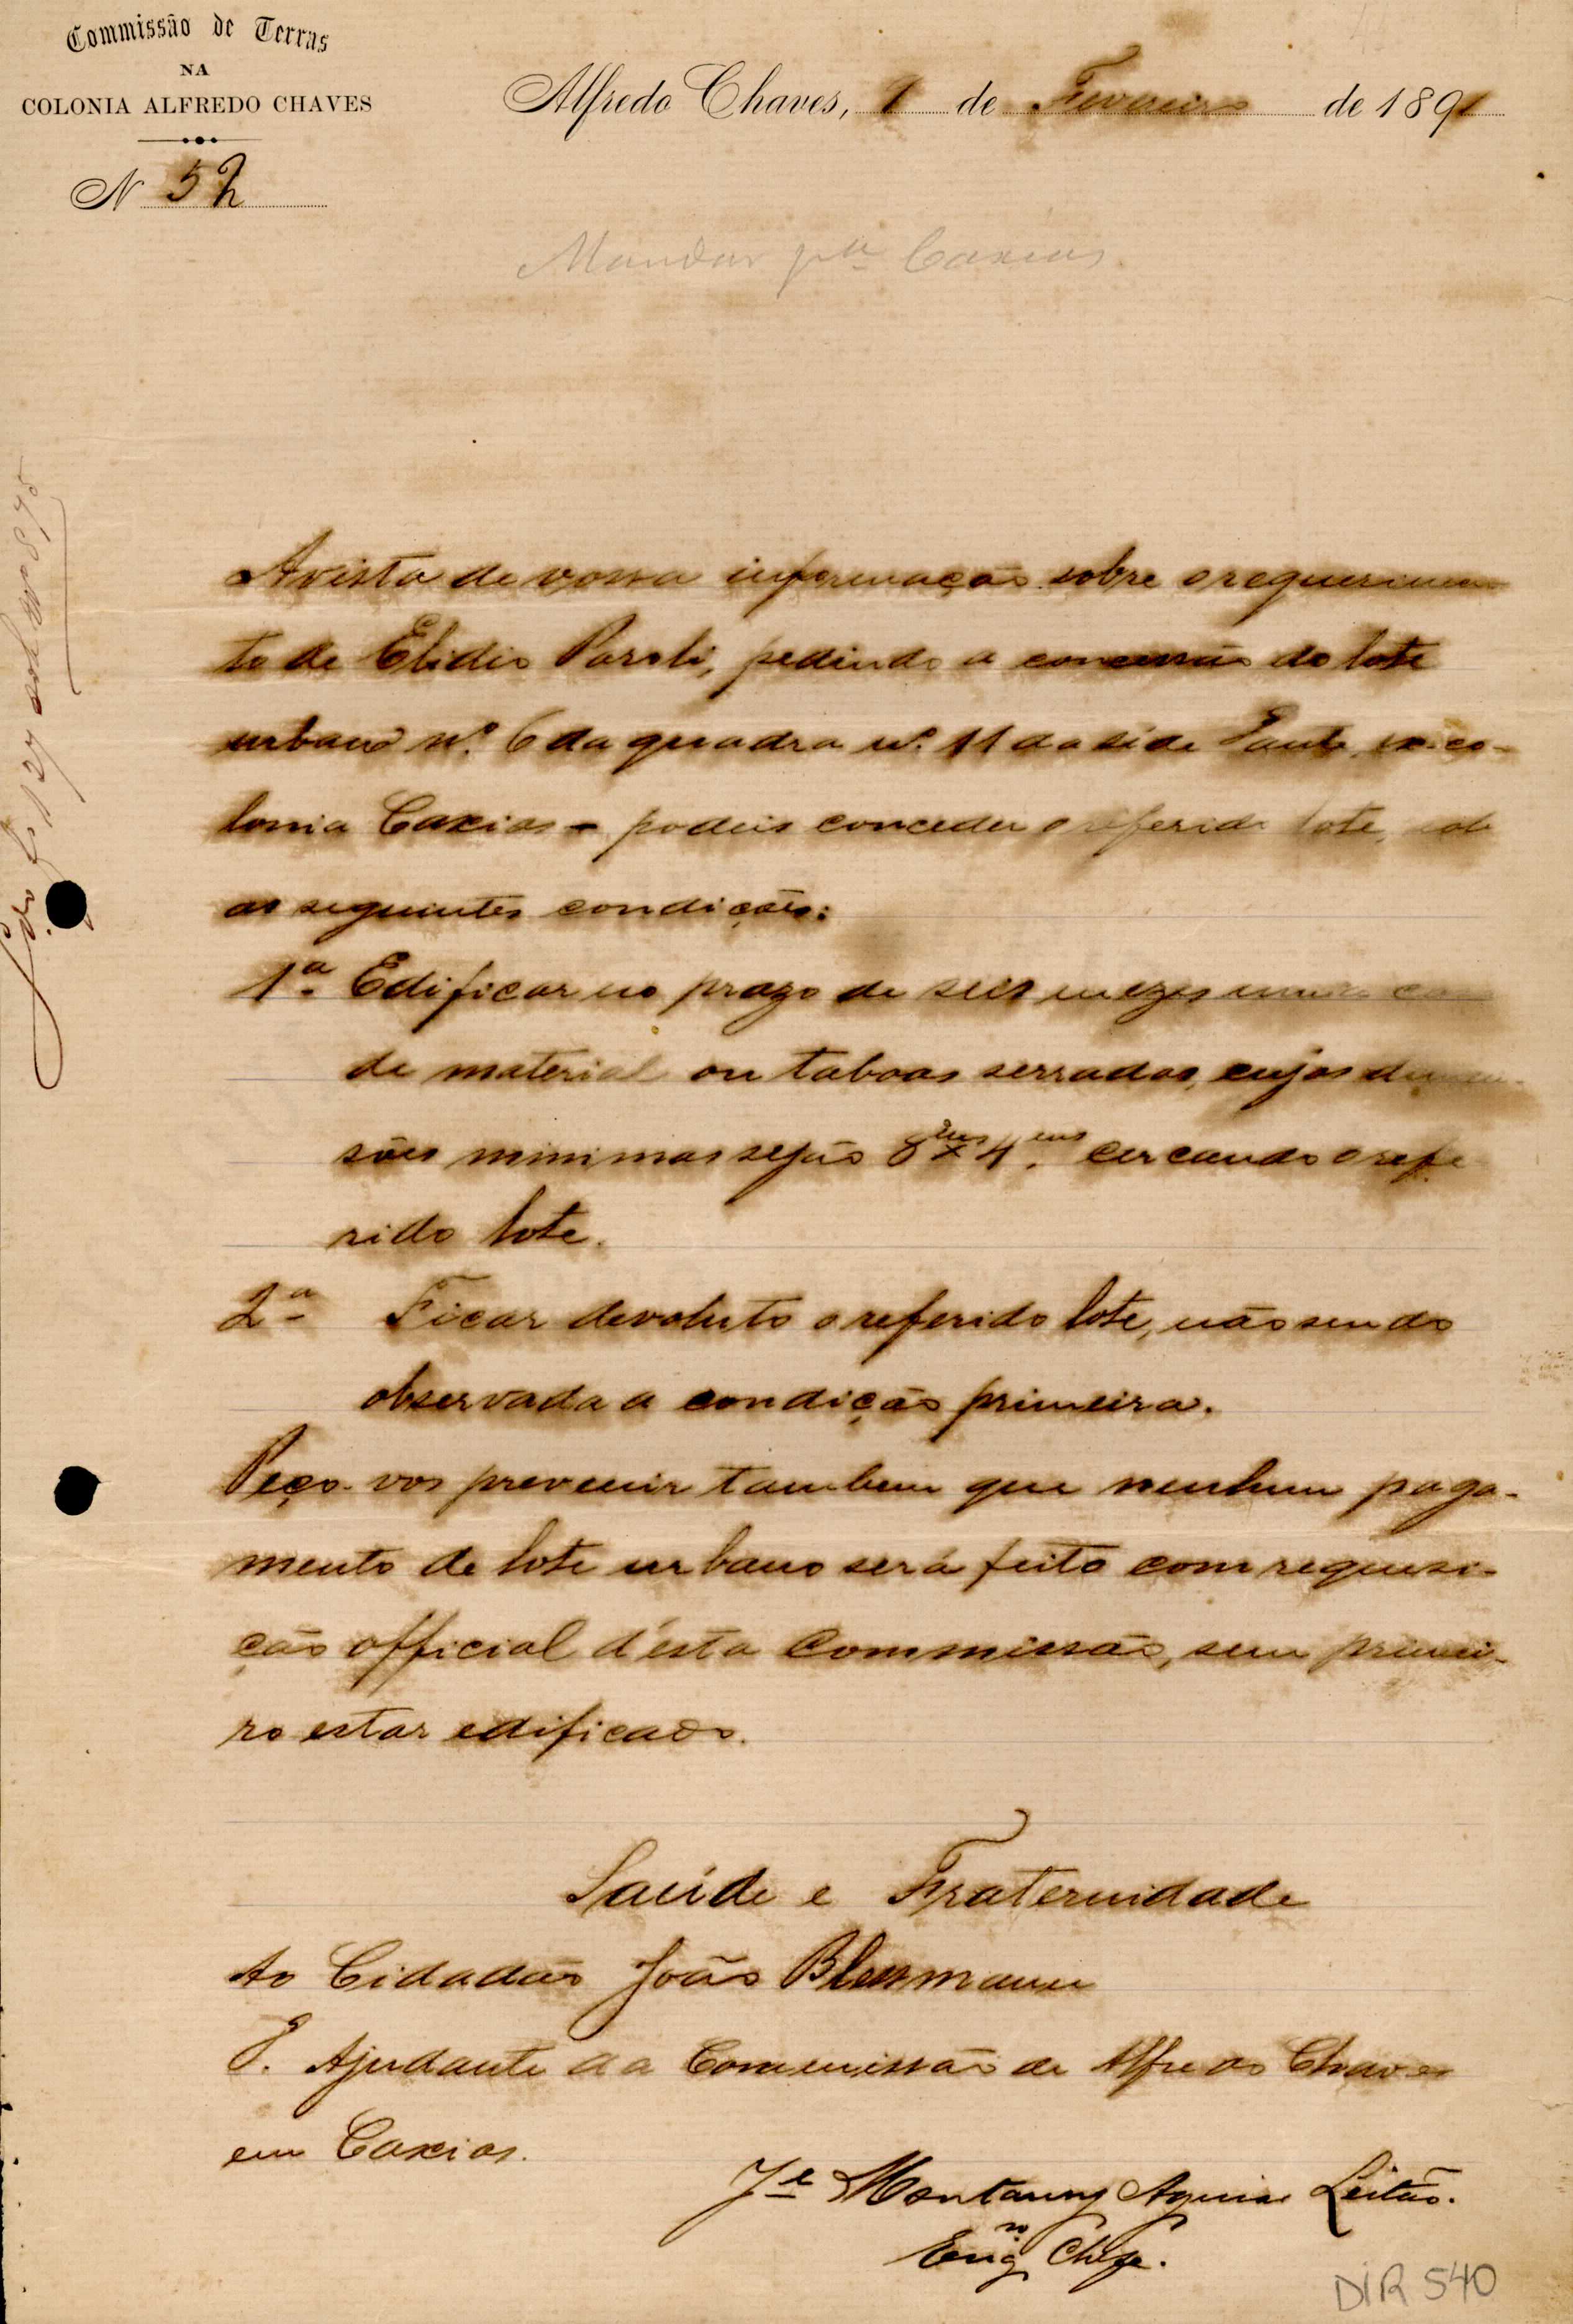 Commissão de Terras
NA
COLONIA ALFREDO CHAVES
Alfredo Chaves, 9 de Fevereiro de 1891
N 52
Mandar pa Caxias
Avista de vossa informação sobre o requerimen
to de Elidio Paroli, pedindo a concessão do lote
urbano nº. 6 da quadra nº. 11 da séde Santa ex-co-
lonia Caxias - podeis conceder o referido lote, sob
as seguintes condições:
1ª Edificar no prazo de seis mezes uma casa
de material ou taboas serradas, cujas dimen-
sões minimas sejão 8ms x 4ms. cercando o refe
rido lote.
2ª Ficar devoluto o referido lote, não sendo
observada a condição primeira.
Peço-vos prevenir tambem que nenhum paga-
mento de lote urbano será feito com requesi-
ção official d'esta Commissão, sem primei-
ro estar edificado.
Saúde e Fraternidade
Ao Cidadão João Blessmann
E. Ajudante da Commissão de Alfredo Chaves
em Caxias.
Jé Montaury Aguiar Leitão.
Engno Chefe.
DIR 540